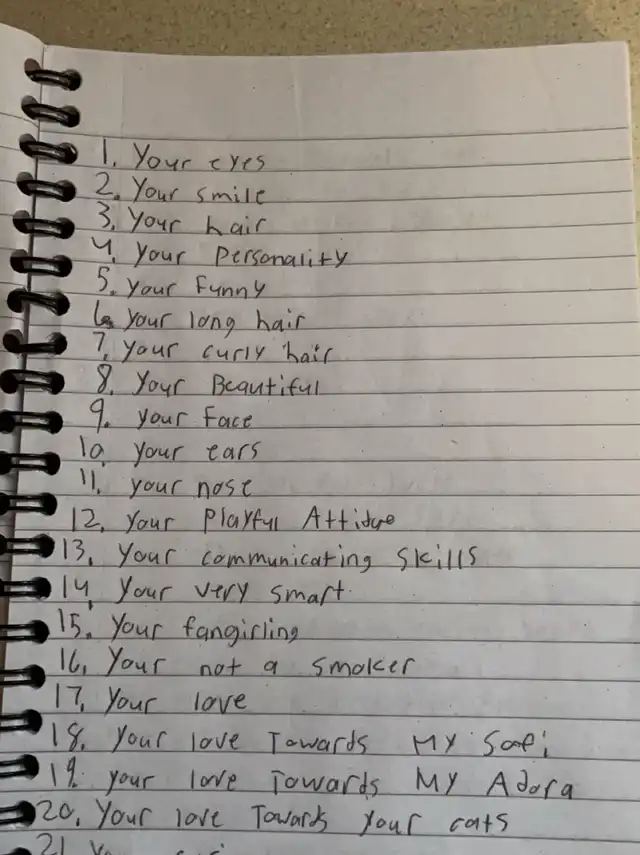 1. Your eyes
2. Your smile
3. Your hair
4. Your Personality
5. Your Funny
6. Your long hair
7. Your curly hair
8. Your Beautiful
9. Your Face
10 Your ears
11. your nose
12. Your Playful
13. Your communicating skills
14. Your very smart.
15. Your fangirling
16. Your not a smoker
17. Your love
18. Your love Towards My
19. your love Towards My Adora
20. Your love Towards your cats
21